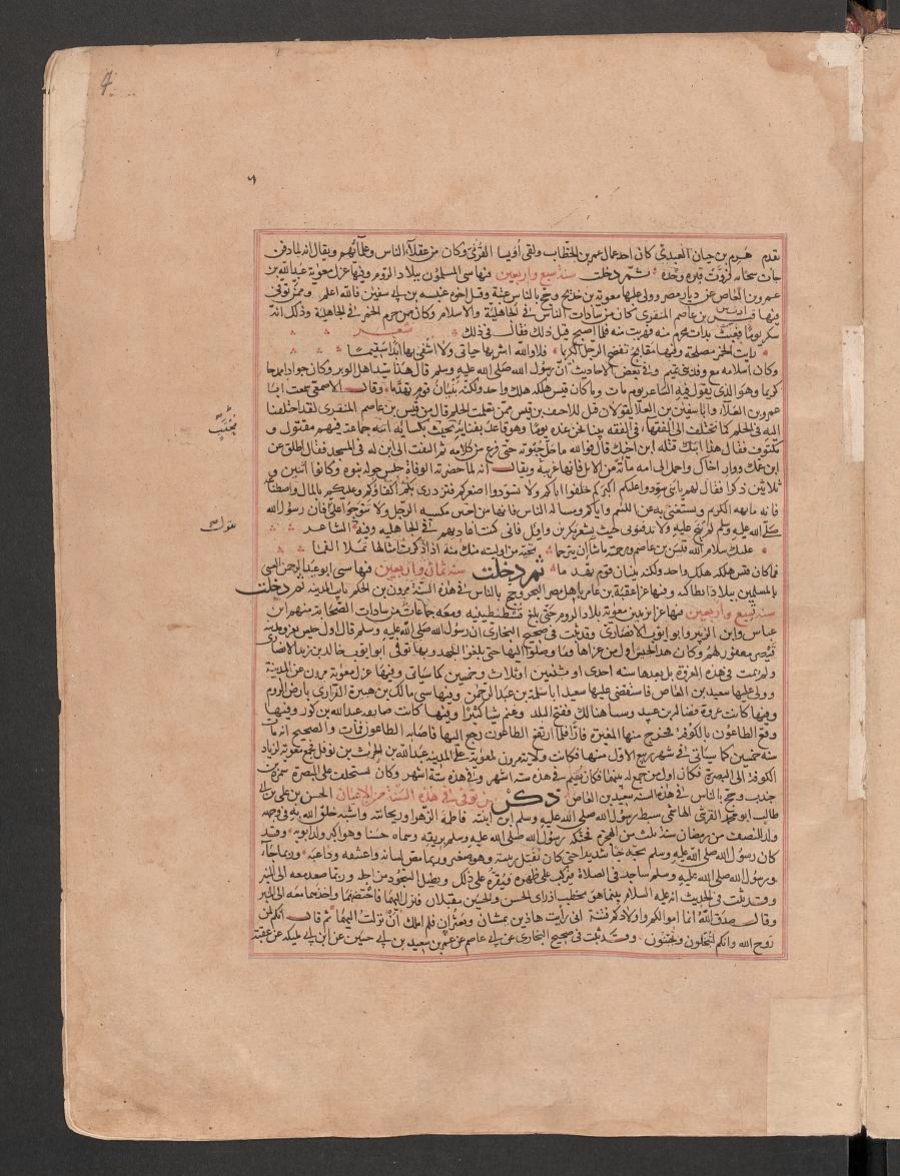 4
تقدم هرم بن حيان العبدي كان احد عمال عمر بن الخطاب ولقي أويسا القرني وكان من عقلاء الناس وعلمائهم ويقال انه لما دفن
جات سحابة فروت قبره وحده ثم دخلت سنة سبع واربعين فيها سى المسلمون ببلاد الروم وفيها عزل معوية عبد الله بن
عمرو بن العاص عن ديار مصر وولى عليها معوية بن خديج وحج بالناس عتبة وقيل اخوه عنبسة بن ابي سفين فالله اعلم وممن توفي
فيها قيس بن عاصم المنقري كان من سادات الناس في الجاهلية والاسلام وكان ممن حرم الخمر في الجاهلية وذلك انه
سكر يوما فعبث بذات محرم منه فهربت منه فلما اصبح قيل ذلك فقال في ذلك شعر
رايت الخمر مصلحة وفيها مقابح تفضح الرجل الكريما فلا والله اشربها حياتي ولا اشفي بها ابدا سقيما
وكان اسلامه مع وفد بني تميم وفي بعض الاحاديث ان رسول الله صلى الله عليه وسلم قال هذا سيد اهل الوبر وكان جوادا ممدحا
كريما وهو الذي يقول فيه الشاعر يوم مات وما كان قيس هلكه هلك واحد ولكنه بنيان قوم تهدما وقال الاصمعي سمعت ابا
عمرو بن العلاء وابا سفين بن العلا يقولان قيل للاحنف بن قيس ممن تعلمت الحلم قال من قيس بن عاصم المنقري لقد اختلفنا
اليه في الحلم كما نختلف الى الفقهاء في الفقه بينا نحن عنده يوما وهو قاعد بفنائه محتب بكسائه اتته جماعة فيهم مقتول و
مكتوف فقال هذا ابنك قتله ابن اخيك قال فوالله ما حل حبوته حتى فرغ من كلامه ثم التفت الى ابن له في المسجد فقال اطلق عن
ابن عمك ووار اخاك واحمل الى امه مائة من الابل فانها غريبة ويقال انه لما حضرته الوفاة جلس حوله بنوه وكانوا اثنين و
ثلاثين ذكرا فقال لهم يا بني سودوا عليكم اكبركم تخلفوا اباكم ولا تسودوا اصغركم فتزدري بكم اكفاؤكم وعليكم بالمال واصطناعه
فانه مابهة الكريم ويستغنى به عن اللئيم واياكم ومسالة الناس فانها من اخس مكسبة الرجل ولا تنوحوا علي فان رسول الله
صلى الله عليه وسلم لم ينح عليه ولا تدفنوني حيث يشعر بكر بن وايل فاني كنت اعاديهم في الجاهلية وفيه الشاعر
عليك سلام الله قيس بن عاصم ورحمته ما شا ان يترحما تحية من اوليته منك منة اذا ذكرت مثالها تملا الفما
فما كان قيس هلكه هلك واحد ولكنه بنيان قوم تهدما ثم دخلت سنة ثمان واربعين فيها سى ابو عبد الرحمن القيني
بالمسلمين ببلاد انطاكية وفيها غزا عقبة بن عامر باهل مصر البحر وحج بالناس في هذه السنة مرون بن الحكم نايب المدينة ثم دخلت
سنة تسع واربعين فيها غزا يزيد بن معوية بلاد الروم حتى بلغ قسطنطينية ومعه جماعات من سادات الصحابة منهم ابن
عباس وابن الزبير وابو ايوب الانصاري وقد ثبت في صحيح البخاري ان رسول الله صلى الله عليه وسلم قال اول جيش يغزو مدينة
قيصر مغفور لهم وكان هذا الجيش اول من غزاها وما وصلوا اليها حتى بلغوا الجهد وبها توفي ابو ايوب خالد بن زيد الانصاري
ولم يمت في هذه الغزوة بل بعدها سنة احدى او ثنتين او ثلاث وخمسين كما سياتي وفيها عزل معوية مرون عن المدينة
وولى عليها سعيد بن العاص فاستقضى عليها سعيد ابا سلمة بن عبد الرحمن وفيها سى مالك بن هبيرة الفزاري بارض الروم
وفيها كانت غزوة فضالة بن عبيد وسا هنالك ففتح البلد وغنم شيا كثيرا وفيها كانت صايفة عبد الله بن كرز وفيها
وقع الطاعون بالكوفة فخرج منها المغيرة فارا فلما ارتفع الطاعون رجع اليها فاصابه الطاعون فمات والصحيح انه مات
سنة خمسين كما سياتي في شهر ربيع الاول منها فكانت ولاية مرون لمعوية على المدينة عبد الله بن الحرث بن نوفل فجمع معوية لزياد
الكوفة الى البصرة فكان اول من جمع له بينهما فكان يقيم في هذه ستة اشهر وفي هذه ستة اشهر وكان يستخلف على البصرة سمرة بن
جندب وحج بالناس في هذه السنة سعيد بن العاص ذكر من توفي في هذه السنة من الاعيان الحسن بن علي بن ابي
طالب ابو محمد القرشي الهاشمي سبط رسول الله صلى الله عليه وسلم ابن ابنته فاطمة الزهرا وريحانته واشبه خلق الله به في وجهه
ولد للنصف من رمضان سنة ثلث من الهجرة فحنكه رسول الله صلى الله عليه وسلم بريقه وسماه حسنا وهو اكبر ولد ابويه وقد
كان رسول الله صلى الله عليه وسلم يحبه حبا شديدا حتى كان يقبل زبيبته وهو صغير وربما مص لسانه واعتنقه وداعبه وربما جاء
ورسول الله صلى الله عليه وسلم ساجد في الصلاة فيركب على ظهره فيقره على ذلك ويطيل السجود من اجله وربما صعد معه الى المنبر
وقد ثبت في الحديث انه عليه السلام بينما هو يخطب اذ راى الحسن والحسين مقبلان فنزل اليهما فاحتضنهما واخذهما معه الى المنبر
وقال صدق الله انما اموالكم واولادكم فتنة اني رايت هاذين يمشيان ويعثران فلم املك ان نزلت اليهما ثم قال انكم لمن
روح الله وانكم لتبخلون وتجبنون وقد ثبت في صحيح البخاري عن ابي عاصم عن عمر بن سعيد بن ابي حسين عن ابن ابي مليكة عن عقبة